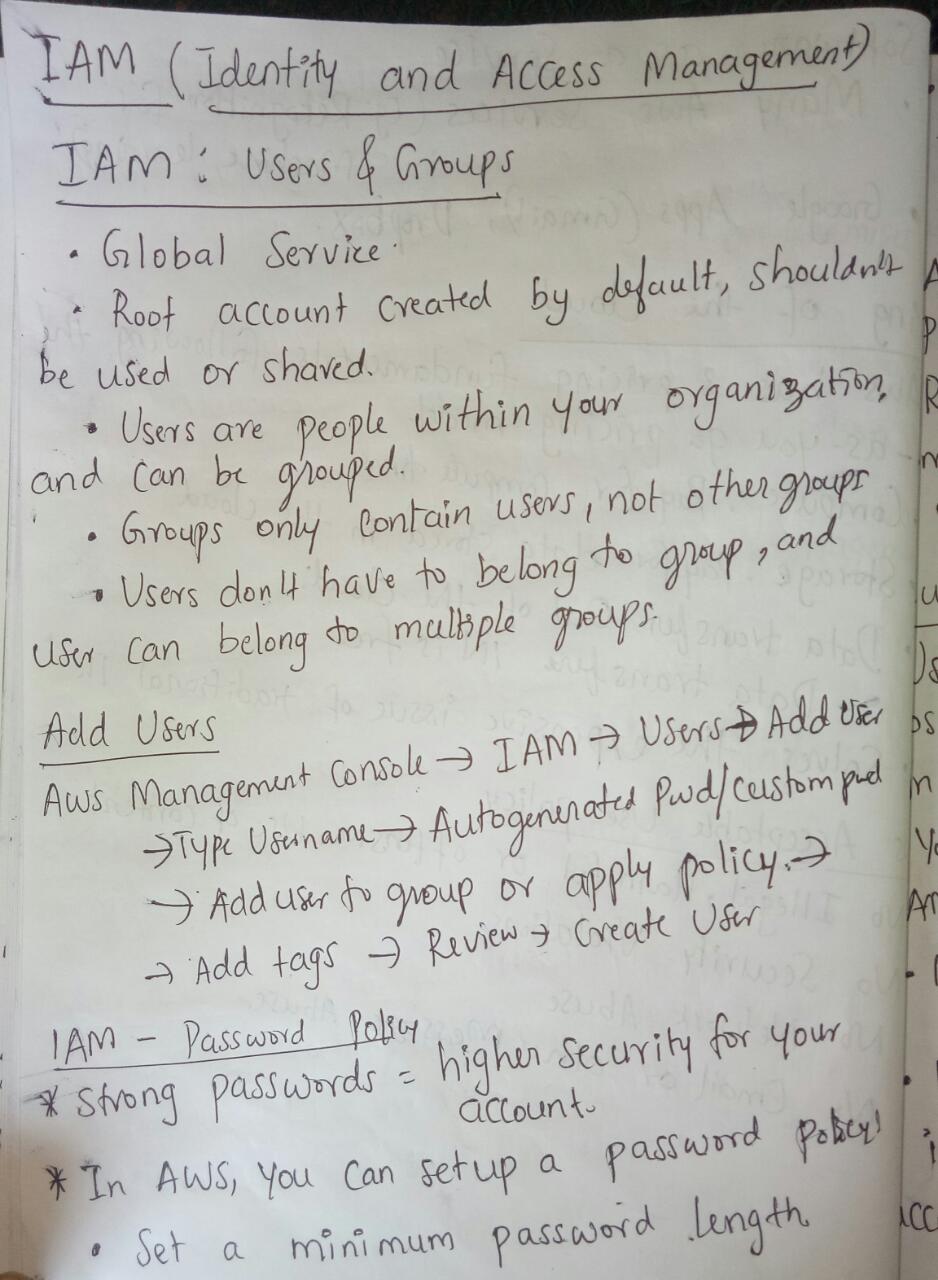 IAM (Identity and Access Management)
IAM : Users & Groups
• Global Service
• Root account created by default, shouldn't
be used or shared.
• Users are people within your organization,
and can be grouped.
• Groups only contain users, not other groups
• Users don't have to belong to group, and
user can belong to multiple groups.
Add Users
Aws Management Console → IAM → Users → Add User
→ Type Username → Autogenerated Pwd/Custom pwd
→ Add user to group or apply policy. →
→ Add tags → Review → Create User
IAM - Password Policy
* Strong passwords = higher security for your
account.
* In AWS, you can setup a password policy:
• Set a minimum password length